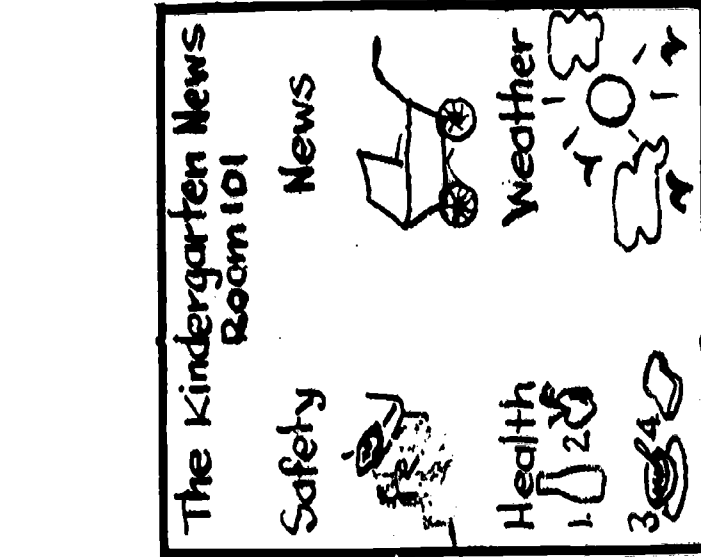 The Kindergarten News
Room 101
Safety News
Health Weather
1. 2
3 4